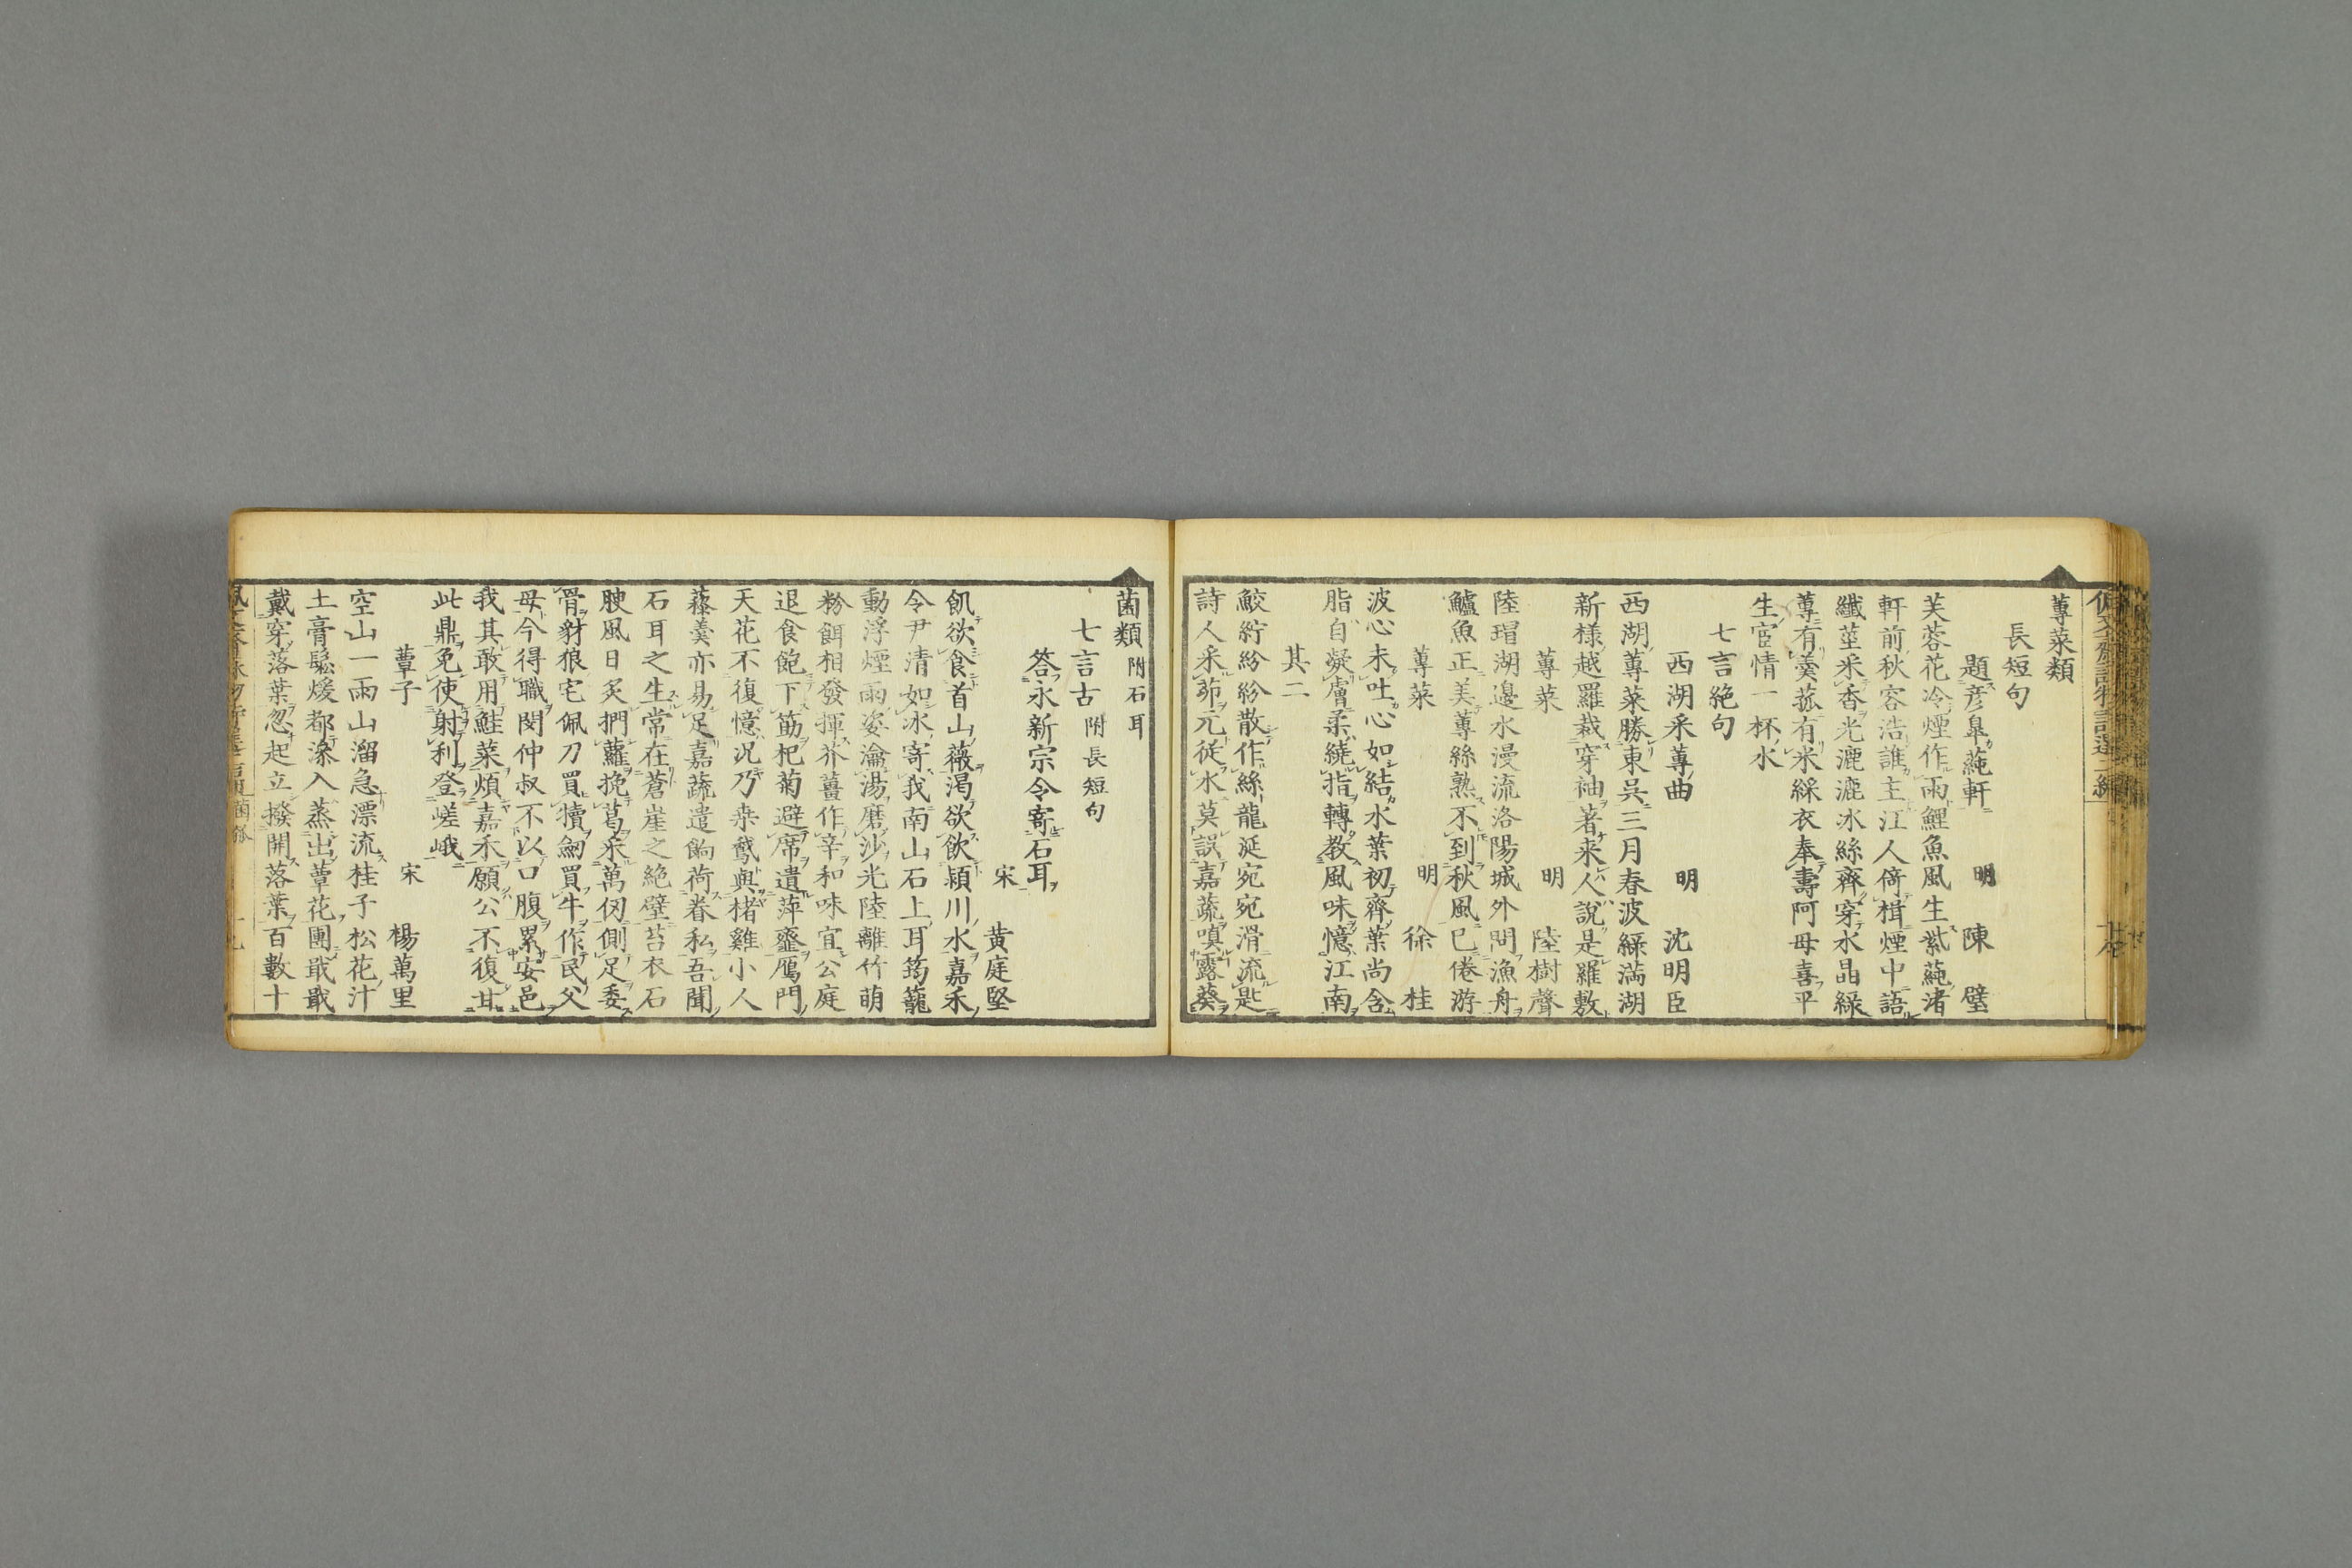 蓴菜類
長短句
題彦皐蓴軒　明　陳　璧
芙蓉花冷煙作雨鯉魚風生紫蓴渚
軒前秋容浩誰主江人倚楫煙中語
纖莖采香光漉漉氷絲齊穿水晶綠
蓴有羹菰有米綵衣奉壽阿母喜平
生宦情一杯水
七言絶句
西湖采蓴曲　明　沈明臣
西湖蓴菜勝東吳三月春波綠滿湖
新様越羅裁穿袖著来人說是羅敷
蓴菜　明　陸樹聲
陸瑁湖邊水漫流洛陽城外問漁舟
鱸魚正美蓴絲熟不到秋風已倦游
蓴菜　明　徐　桂
波心未吐心如結水葉初齊葉尚含
脂自凝膚柔繞指轉教風味憶江南
其二
鮫紵紛紛散作絲龍涎宛宛滑流匙
詩人采茆元從水莫誤嘉蔬嗅露葵
菌類 附石耳
七言古 附長短句
答永新宗令寄石耳
宋　黃庭堅
飢欲食首山薇渴欲飲潁川水嘉禾
令尹清如冰寄我南山石上耳筠籠
動浮煙雨姿瀹湯磨沙光陸離竹萌
粉餌相發揮芥薑作辛和味宜公庭
退食飽下筯杞菊避席遺萍虀鴈門
天花不復憶況乃桒鵞與楮雞小人
藜羹亦易足嘉蔬遣餉荷眷私吾聞
石耳之生常在蒼崖之絶壁苔衣石
腴風日炙捫蘿挽葛采萬仞側足委
骨豺狼宅佩刀買犢劒買牛作民父
母今得職閔仲叔不以口腹累安邑
我其敢用鮭菜煩嘉禾願公不復甘
此鼎免使射利登嵯峨
蕈子　宋　楊萬里
空山一雨山溜急漂流桂子松花汁
土膏鬆煖都滲入蒸出蕈花團戢戢
戴穿落葉忽起立撥開落葉百數十